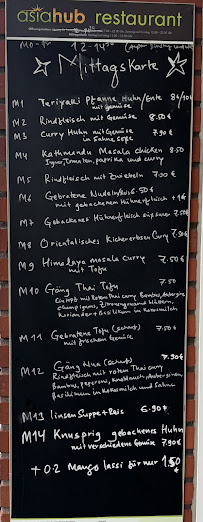 asiahub restaurant
Mo-Fr 12-14
Mittagskarte
M1 Teriyaki Pfanne Huhn/Ente 8€/9€
mit Gemüse
M2 Rindfleisch mit Gemüse 8.50€
M3 Curry Huhn mit Gemüse 7.90€
in Sahne soße
M4 Kathmandu Masala chicken 8.50
Tomaten, paprika und curry
M5 Rindfleisch mit Zwiebeln 7.00€
M6 Gebratene Nudeln/Reis 6.50€
mit gebackenen Hühnerfleisch +1€
M7 Gebackener Hühnerfleisch süss sauer 7.50€
M8 Orientalisches Kichererbsen Curry 7.50€
M9 Himalaya masala Curry 7.50€
mit Tofu
M10 Gäng Thai Tofu 7.50
mit Roten Thai curry Bambus, Aubergine
champignons, Zitronengrass blättern,
Koriander + Basilikum in Kokosmilch
M11 Gebratene Tofu (scharf) 7.50€
mit frischen Gemüse
M12 Gäng Nua (scharf) 7.90€
Rindfleisch mit roten Thai curry
Bambus, Peperoni, Knoblauch, Auberginen
Basilikum in Kokosmilch und Sahne
M13 linsen Suppe + Reis 6.90€
M14 Knusprig gebackenes Huhn
mit verschiedene Gemüse 7.90€
+ 0.2 Mango lassi für nur 1.50€